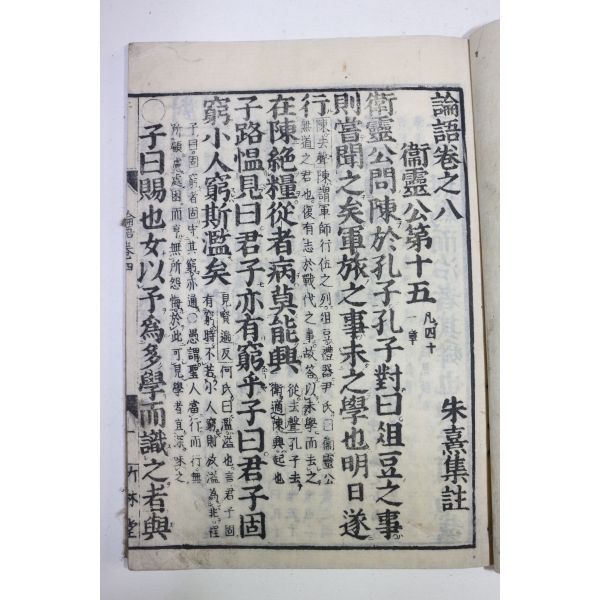 論語卷之八
朱熹集註
衞靈公第十五
凡四十
一章
衞靈公問陳於孔子孔子對曰俎豆之事
則嘗聞之矣軍旅之事未之學也明日遂
行
陳去聲陳謂軍師行伍之列俎豆禮器尹氏曰衞靈公
無道之君也復有志於戰代之事故答以未學而去之
在陳絕糧從者病莫能興
從去聲孔子去
衞適陳興起也
子路慍見曰君子亦有窮乎子曰君子固
窮小人窮斯濫矣
見賢遍反何氏曰濫溢也言君子固
有窮時不若小人窮則放溢為非程
子曰固窮者固守其窮亦通○愚謂聖人當行而行無
所顧慮處困而亨無所怨悔於此可見學者宜深味之
○子曰賜也女以予為多學而識之者與
論語卷四
竹林堂